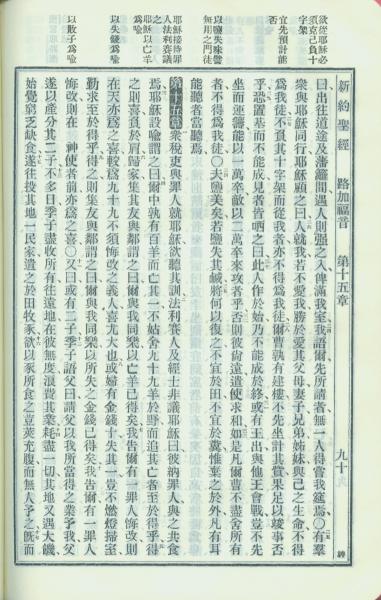 新約聖經 路加福音 第十五章 九十
欲從耶穌必
須克己負十
字架
宜先預計能
否
以鹽失味譬
無用之門徒
耶穌接待罪
人法利賽議
之
耶穌以亡羊
為喻
以失錢為喻
以敗子為喻
曰出往道途及藩籬間遇人則强之入俾滿我室我語爾先所請者無一人得嘗我筵焉〇有羣
衆與耶穌同行耶穌顧之曰人就我若不愛我勝於愛其父母妻子兄弟姊妹與己之生命不得
為我徒不負其十字架而從我者亦不得為我徒爾曹孰有建樓不先坐計其貲果足以竣事否
乎恐置基而不能成見者皆哂之曰此人作於始乃不能成於終或有王出與他王會戰豈不先
坐而運籌能以一萬卒敵以二萬卒來攻者乎否則彼尚遠遣使求和如是凡爾曹不盡舍所有
者不得為我徒〇夫鹽美矣若鹽失其鹹將何以復之不宜於田不宜於糞惟棄之於外凡有耳
能聽者當聽焉
第十五章衆稅吏與罪人就耶穌欲聽其訓法利賽人及經士非議耶穌曰彼納罪人與之共食
焉耶穌設喻謂之曰爾中孰有百羊而亡其一不姑舍九十九羊於野而追其亡者至於得乎得
之則喜負於肩歸家集其友與鄰謂之曰爾與我同樂以亡羊已得矣我告爾有一罪人悔改則
在天亦為之喜較為九十九不須悔改之義人喜尤大也或婦有金錢十失其一豈不燃燈掃室
勤求至於得乎得之則集友與鄰謂之曰爾與我同樂以所失之金錢已得矣我告爾有一罪人
悔改則在 神使者前亦為之喜〇又曰或有二子季子語父曰請父以我所當得之業予我父
遂以產分其二子不多日季子盡收所有往遠地在彼無度浪費其業耗盡一切其地又遇大饑
始覺窮乏缺食遂往投其地一民家遣之於田牧豕欲以豕所食之荳莢充腹而無人予之旣而